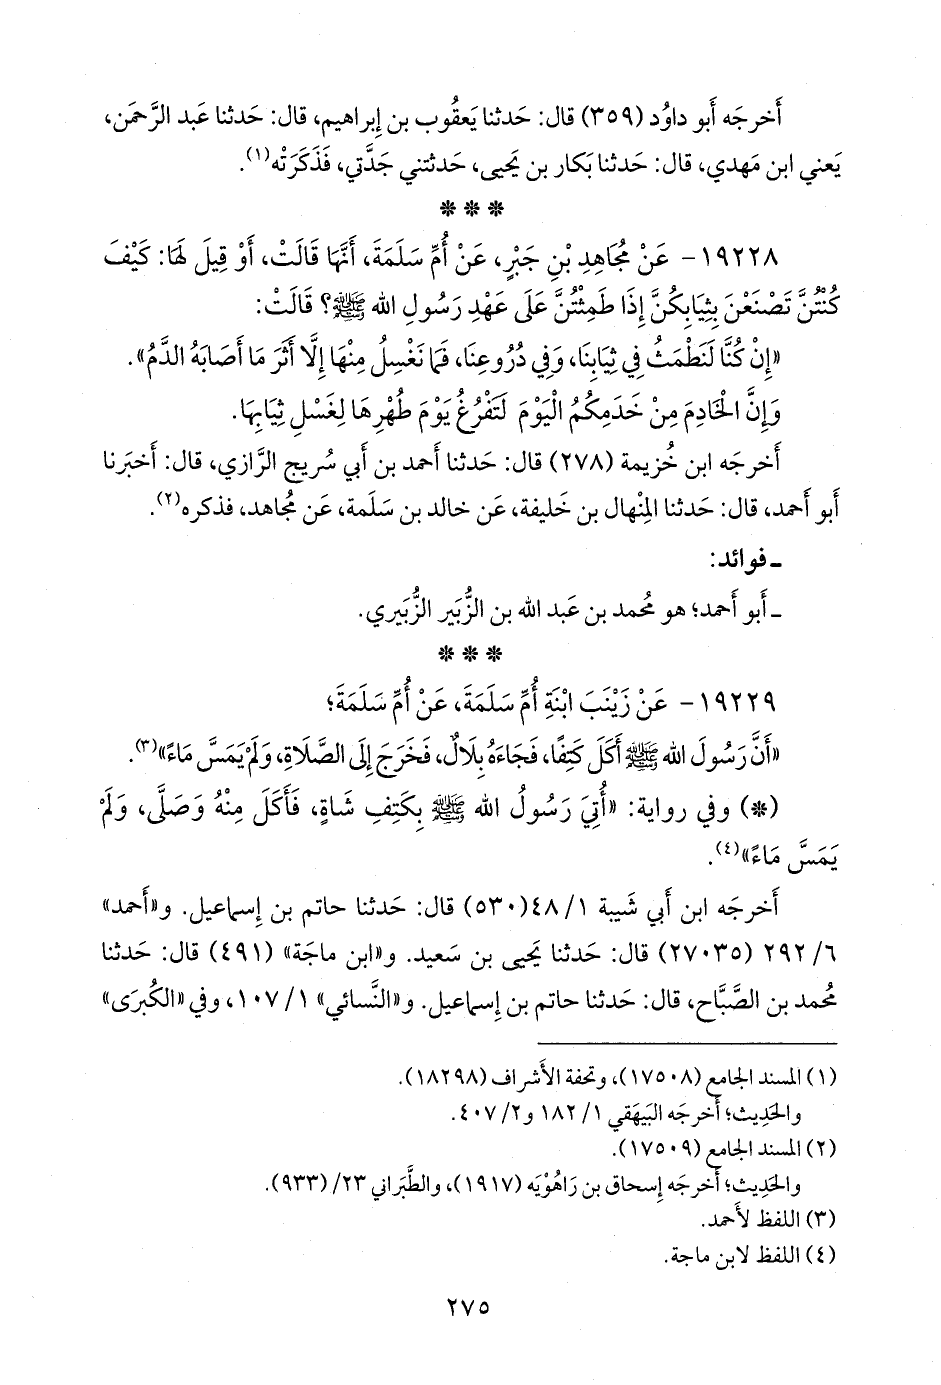 أَخرجَه أَبو داوُد (٣٥٩) قال: حَدثنا يَعقُوب بن إِبراهيم، قال: حَدثنا عَبد الرَّحمَن،
يَعني ابن مَهدي، قال: حَدثنا بَكار بن يَحيى، حَدثتني جَدَّتي، فَذَكَرَتْه(١).
* * *
١٩٢٢٨- عَنْ مُجَاهِدِ بْنِ جَبْرٍ، عَنْ أُمِّ سَلَمَةَ، أَنَّهَا قَالَتْ، أَوْ قِيلَ لَهَا: كَيْفَ
كُنْتُنَّ تَصْنَعْنَ بِثِيَابِكُنَّ إِذَا طَمِثْتُنَّ عَلَى عَهْدِ رَسُولِ الله ﷺ؟ قَالَتْ:
«إِنْ كُنَّا لَنَطْمَثُ فِي ثِيَابِنَا، وَفِي دُرُوعِنَا، فَمَا نَغْسِلُ مِنْهَا إِلَّا أَثَرَ مَا أَصَابَهُ الدَّمُ».
وَإِنَّ الْخَادِمَ مِنْ خَدَمِكُمُ الْيَوْمَ لَتَفْرُغُ يَوْمَ طُهْرِهَا لِغَسْلِ ثِيَابِهَا.
أَخرجَه ابن خُزيمة (٢٧٨) قال: حَدثنا أَحمد بن أَبي سُريج الرَّازي، قال: أَخبَرنا
أَبو أَحمد، قال: حَدثنا المِنْهال بن خَليفة، عَن خالد بن سَلَمة، عَن مُجاهد، فذكره(٢).
ـ فوائد:
ـ أَبو أَحمد؛ هو مُحمد بن عَبد الله بن الزُّبَير الزُّبَيري.
* * *
١٩٢٢٩- عَنْ زَيْنَبَ ابْنَةِ أُمِّ سَلَمَةَ، عَنْ أُمِّ سَلَمَةَ؛
«أَنَّ رَسُولَ الله ﷺ أَكَلَ كَتِفًا، فَجَاءَهُ بِلَالٌ، فَخَرَجَ إِلَى الصَّلَاةِ، وَلَمْ يَمَسَّ مَاءً»(٣).
(*) وفي رواية: «أُتِيَ رَسُولُ الله ﷺ بِكَتِفِ شَاةٍ، فَأَكَلَ مِنْهُ وَصَلَّى، وَلَمْ
يَمَسَّ مَاءً»(٤).
أَخرجَه ابن أَبي شَيبة ١/ ٤٨(٥٣٠) قال: حَدثنا حاتم بن إِسماعيل. و«أَحمد»
٦/ ٢٩٢ (٢٧٠٣٥) قال: حَدثنا يَحيى بن سَعيد. و«ابن ماجَة» (٤٩١) قال: حَدثنا
مُحمد بن الصَّبَّاح، قال: حَدثنا حاتم بن إِسماعيل. و«النَّسائي» ١/ ١٠٧، وفي «الكُبرَى»
(١) المسند الجامع (١٧٥٠٨)، وتحفة الأَشراف (١٨٢٩٨).
والحَدِيث؛ أَخرجَه البَيهَقي ١/ ١٨٢ و٢/ ٤٠٧.
(٢) المسند الجامع (١٧٥٠٩).
والحَدِيث؛ أَخرجَه إِسحاق بن رَاهُوْيَه (١٩١٧)، والطَّبَراني ٢٣/ (٩٣٣).
(٣) اللفظ لأَحمد.
(٤) اللفظ لابن ماجة.
٢٧٥